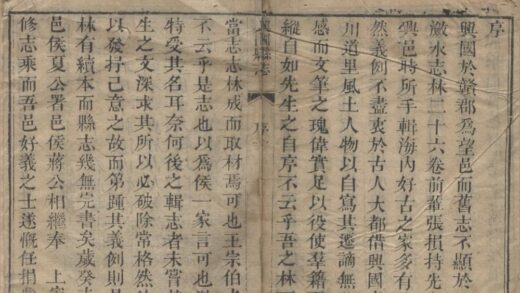 序
興國於贛郡為望邑而舊志不顯於
瀲水志林二十六卷前輩張損持先
興邑時所手輯海内好古之家多有
然義例不盡衷於古人大都借興國
川道里風土人物以自寫其邁謫無
感而文筆之瑰偉實足以役使羣籍
縱自如先生之自序不云乎吾之林
興國縣志
序
當志志林成而取材焉可也王宗伯
不云乎是志也以爲侯一家言可也
特受其名耳奈何後之輯志者未嘗
生之文深求其所以必破除常格然
以發抒己意之故而第踵其義例則
林有續本而縣志幾無完書矣歲癸
邑侯夏公署邑侯蔣公相繼奉 上
修志乘而吾邑好義之士遂慨任捐